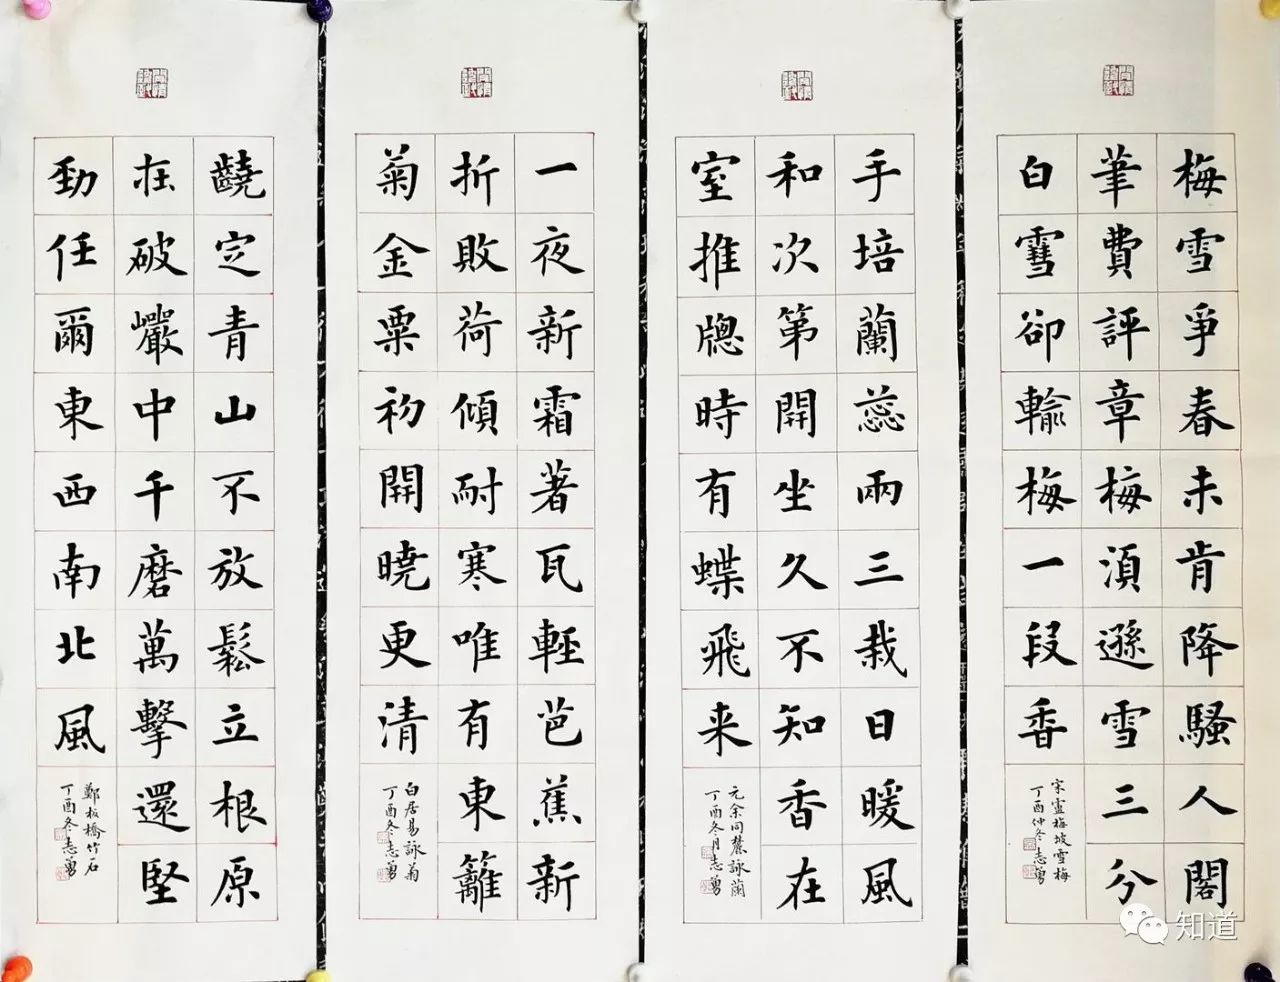 梅雪爭春未肯降騷人閣
筆費評章梅湏遜雪三分
白䨮卻輸梅一段香
宋盧梅坡雪梅
丁酉仲冬志勇
手培蘭蕊兩三栽日暖風
和次第開坐久不知香在
室推牕時有蝶飛来
元余同麓詠蘭
丁酉冬月志勇
一夜新霜著瓦輕芭蕉新
折敗荷傾耐寒唯有東籬
菊金粟初開曉更清
白居易詠菊
丁酉冬志勇
䶧定青山不放鬆立根原
在破巗中千磨萬擊還堅
勁任爾東西南北風
鄭板橋竹石
丁酉冬志勇
知道